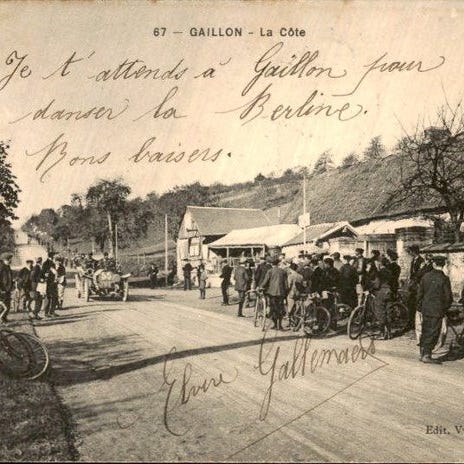 67 — GAILLON - La Côte
Je t'attends à Gaillon pour
danser la Berline.
Bons baisers.
Elvire Gallemaers
Edit. V